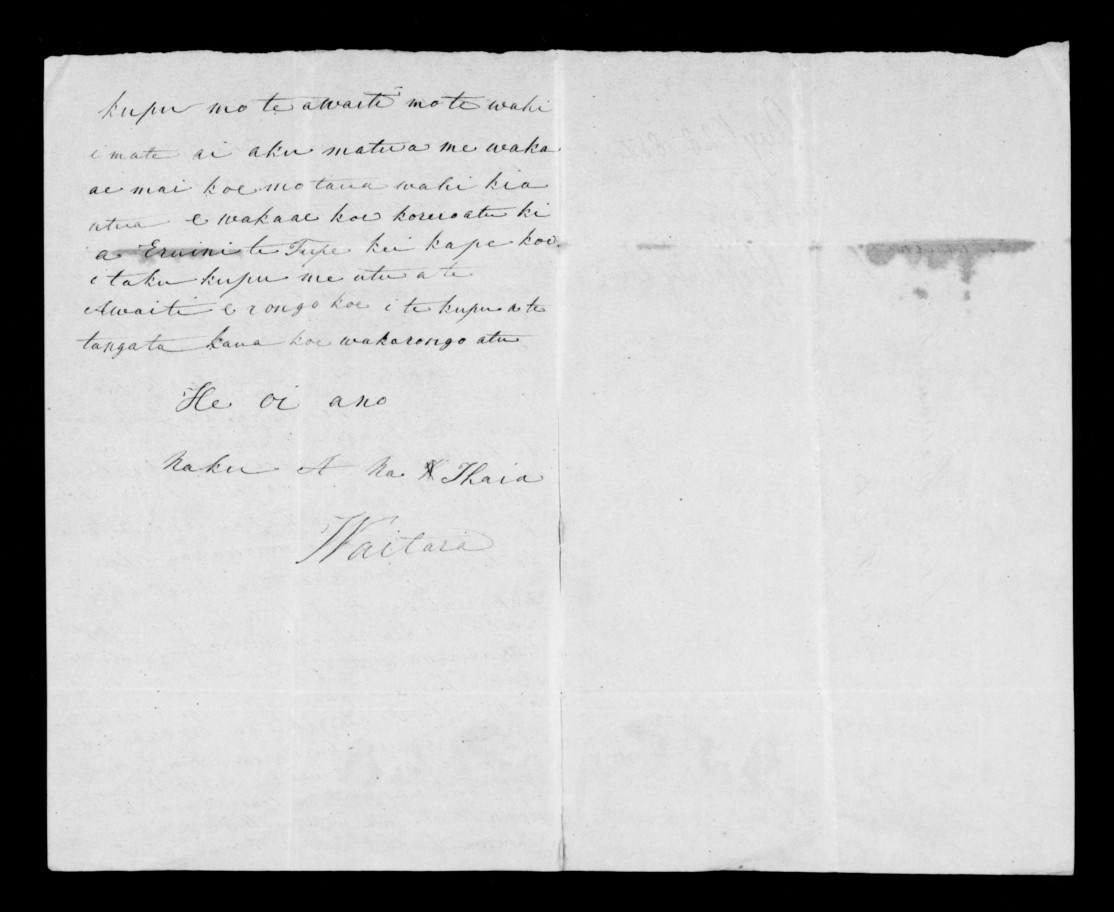 kupu mo te awaiti mo te wahi
i mate ai aku matua me waka
ae mai koe mo taua wahi kia
utua e wakaae koe koreroatu ki
a Eruini te Tupe kei kape koe
i taku kupu me utu a te
Awaiti e rongo koe i te kupu a te
tangata kaua koe wakarongo atu
He oi ano
Naku A Na Ihaia
Waitara